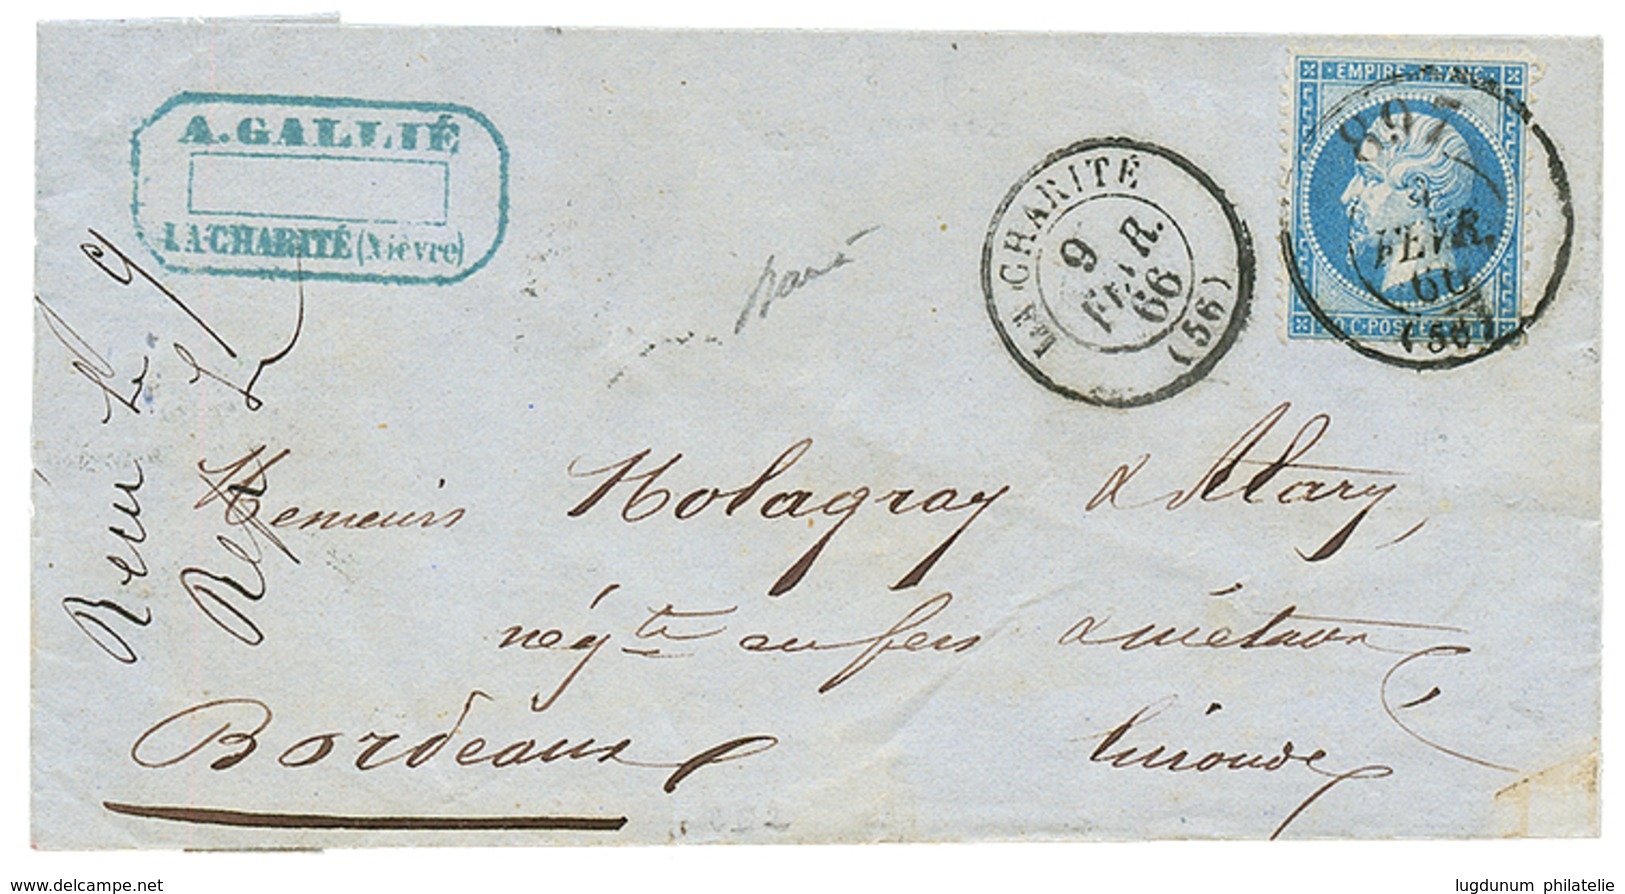 A. GALLIÉ
LA CHARITÉ (Nièvre)
LA CHARITÉ
9
FEVR.
66
(56)
EMPIRE FRANC
897
FEVR.
66
(56)
20 C · POSTES · 20 C
Messieurs Molagray & Alary,
négts en fers & métaux
Bordeaux
Gironde
www.delcampe.net
lugdunum philatelie